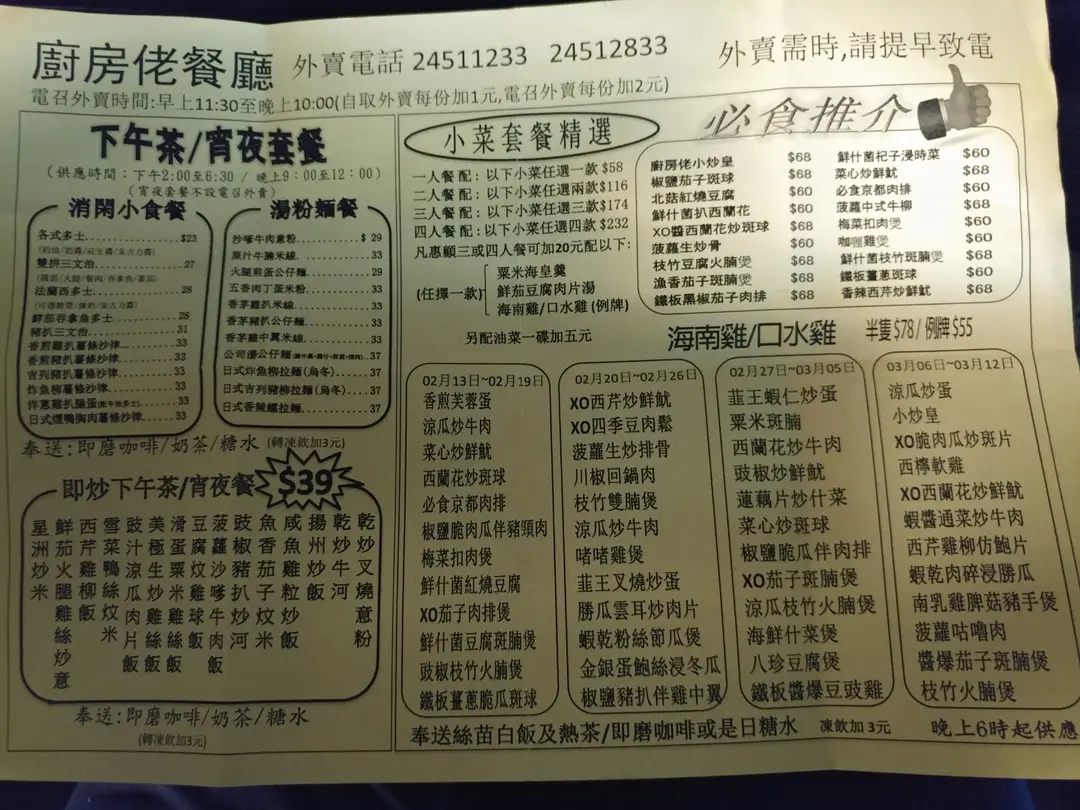 廚房佬餐廳
外賣電話 24511233 24512833
外賣需時,請提早致電
電召外賣時間:早上11:30至晚上10:00(自取外賣每份加1元,電召外賣每份加2元)
下午茶/宵夜套餐
(供應時間:下午2:00至6:30 / 晚上9:00至12:00)
(宵夜套餐不設電召外賣)
消閑小食餐
各式多士 $23
雙拼三文治 27
法蘭西多士 28
鮮茄吞拿魚多士 28
豬扒三文治 31
香煎雞扒薯條沙律 33
香煎豬扒薯條沙律 33
吉列豬扒薯條沙律 33
炸魚柳薯條沙律 33
洋蔥雞扒腿蛋 33
日式煙鴨胸肉薯條沙律 33
湯粉麵餐
沙嗲牛肉意粉 $ 29
原汁牛腩米線 33
火腿煎蛋公仔麵 29
五香肉丁蛋米粉 33
香茅雞扒米線 33
香茅豬扒公仔麵 33
香茅雞中翼米線 33
公司湯公仔麵 37
日式炸魚柳拉麵(烏冬) 37
日式吉列豬柳拉麵(烏冬) 37
日式香辣螺拉麵 37
奉送:即磨咖啡/奶茶/糖水 (轉凍飲加3元)
即炒下午茶/宵夜餐 $39
星洲炒米
鮮茄火腿雞絲炒意
西芹雞柳飯
雪菜鴨絲炆米
豉汁涼瓜肉片飯
美極生炒雞絲飯
滑蛋粟米雞絲飯
豆腐炆斑球飯
菠蘿沙嗲牛肉飯
豉椒豬扒炒河
魚香茄子炆米
咸魚雞粒炒飯
揚州炒飯
乾炒牛河
乾炒叉燒意粉
奉送:即磨咖啡/奶茶/糖水
(轉凍飲加3元)
小菜套餐精選
一人餐 配:以下小菜任選一款 $58
二人餐 配:以下小菜任選兩款 $116
三人餐 配:以下小菜任選三款 $174
四人餐 配:以下小菜任選四款 $232
凡惠顧三或四人餐可加20元配以下:
(任擇一款)
粟米海皇羹
鮮茄豆腐肉片湯
海南雞/口水雞 (例牌)
另配油菜一碟加五元
必食推介
廚房佬小炒皇 $68
椒鹽茄子斑球 $68
北菇紅燒豆腐 $60
鮮什菌扒西蘭花 $60
XO醬西蘭花炒斑球 $68
菠蘿生炒骨 $60
枝竹豆腐火腩煲 $68
漁香茄子斑腩煲 $68
鐵板黑椒茄子肉排 $68
鮮什菌杞子浸時菜 $60
菜心炒鮮魷 $60
必食京都肉排 $60
菠蘿中式牛柳 $68
梅菜扣肉煲 $60
咖喱雞煲 $60
鮮什菌枝竹斑腩煲 $68
鐵板薑蔥斑球 $60
香辣西芹炒鮮魷 $68
海南雞/口水雞 半隻$78/例牌$55
02月13日~02月19日
香煎芙蓉蛋
涼瓜炒牛肉
菜心炒鮮魷
西蘭花炒斑球
必食京都肉排
椒鹽脆肉瓜伴豬頸肉
梅菜扣肉煲
鮮什菌紅燒豆腐
XO茄子肉排煲
鮮什菌豆腐斑腩煲
豉椒枝竹火腩煲
鐵板薑蔥脆瓜斑球
02月20日~02月26日
XO西芹炒鮮魷
XO四季豆肉鬆
菠蘿生炒排骨
川椒回鍋肉
枝竹雙腩煲
涼瓜炒牛肉
啫啫雞煲
韮王叉燒炒蛋
勝瓜雲耳炒肉片
蝦乾粉絲節瓜煲
金銀蛋鮑絲浸冬瓜
椒鹽豬扒伴雞中翼
02月27日~03月05日
韮王蝦仁炒蛋
粟米斑腩
西蘭花炒牛肉
豉椒炒鮮魷
蓮藕片炒什菜
菜心炒斑球
椒鹽脆瓜伴肉排
XO茄子斑腩煲
涼瓜枝竹火腩煲
海鮮什菜煲
八珍豆腐煲
鐵板醬爆豆豉雞
03月06日~03月12日
涼瓜炒蛋
小炒皇
XO脆肉瓜炒斑片
西檸軟雞
XO西蘭花炒鮮魷
蝦醬通菜炒牛肉
西芹雞柳仿鮑片
蝦乾肉碎浸勝瓜
南乳雞脾菇豬手煲
菠蘿咕嚕肉
醬爆茄子斑腩煲
枝竹火腩煲
奉送絲苗白飯及熱茶/即磨咖啡或是日糖水 凍飲加3元 晚上6時起供應